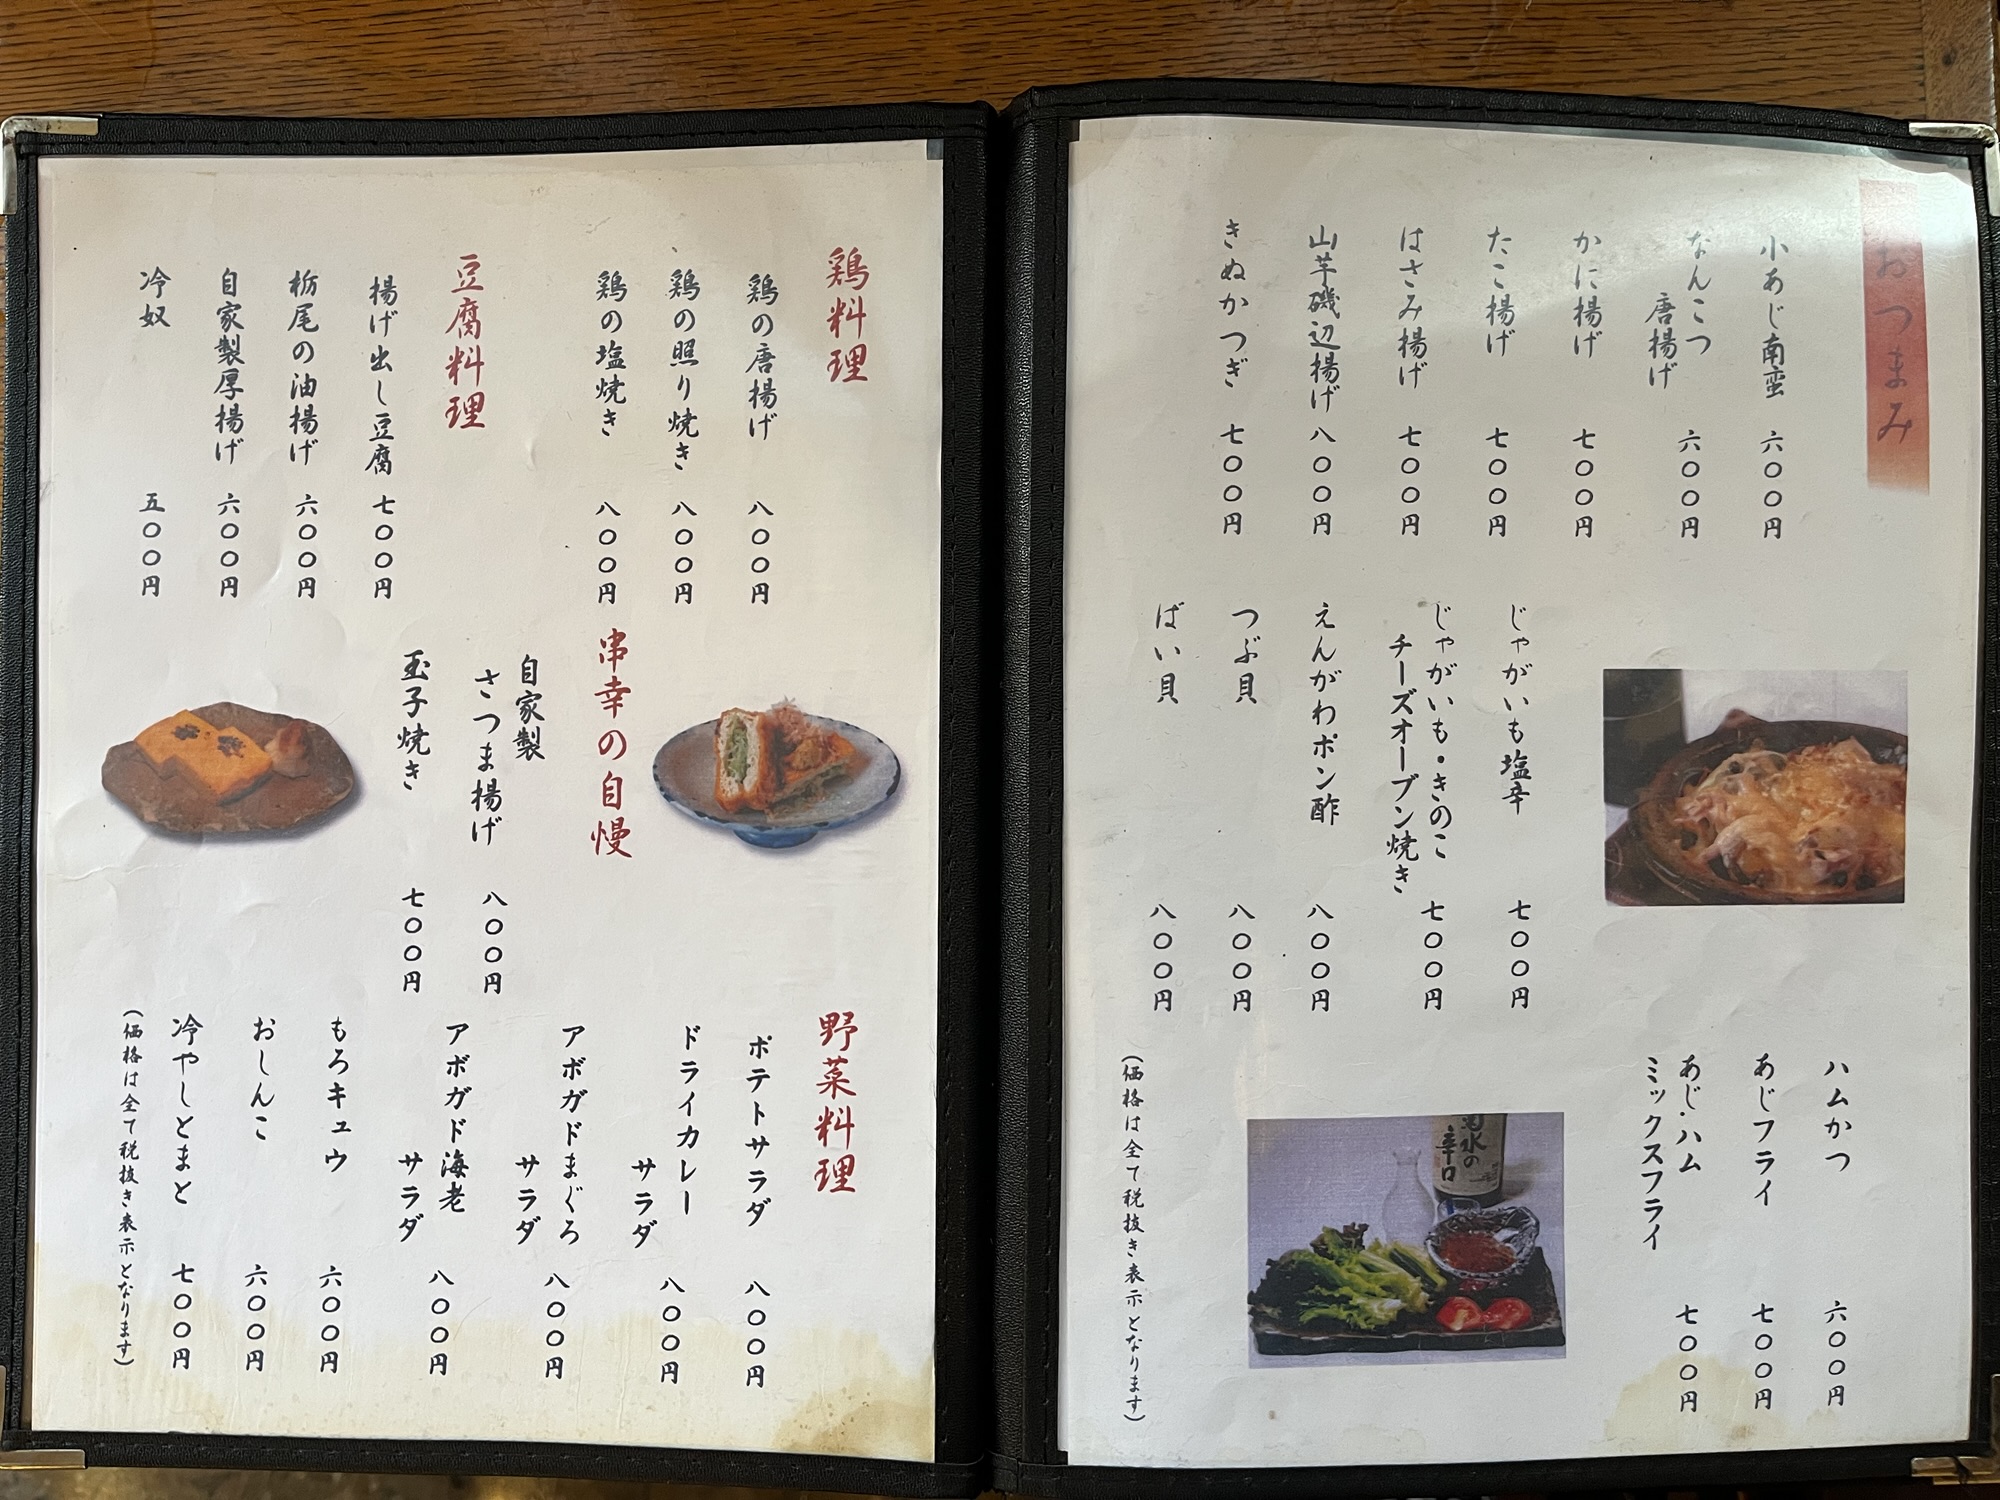 おつまみ
小あじ南蛮 六〇〇円
なんこつ
唐揚げ 六〇〇円
かに揚げ 七〇〇円
たこ揚げ 七〇〇円
はさみ揚げ 七〇〇円
山芋磯辺揚げ 八〇〇円
きぬかつぎ 七〇〇円
じゃがいも塩辛 七〇〇円
じゃがいも・きのこ
チーズオーブン焼き 七〇〇円
えんがわポン酢 八〇〇円
つぶ貝 八〇〇円
ばい貝 八〇〇円
ハムかつ 六〇〇円
あじフライ 七〇〇円
あじ・ハム
ミックスフライ 七〇〇円
菊水の
辛口
(価格は全て税抜き表示となります)
鶏料理
鶏の唐揚げ 八〇〇円
鶏の照り焼き 八〇〇円
鶏の塩焼き 八〇〇円
豆腐料理
揚げ出し豆腐 七〇〇円
栃尾の油揚げ 六〇〇円
自家製厚揚げ 六〇〇円
冷奴 五〇〇円
串幸の自慢
自家製
さつま揚げ 八〇〇円
玉子焼き 七〇〇円
野菜料理
ポテトサラダ 八〇〇円
ドライカレー
サラダ 八〇〇円
アボガドまぐろ
サラダ 八〇〇円
アボガド海老
サラダ 八〇〇円
もろキュウ 六〇〇円
おしんこ 六〇〇円
冷やしとまと 七〇〇円
(価格は全て税抜き表示となります)